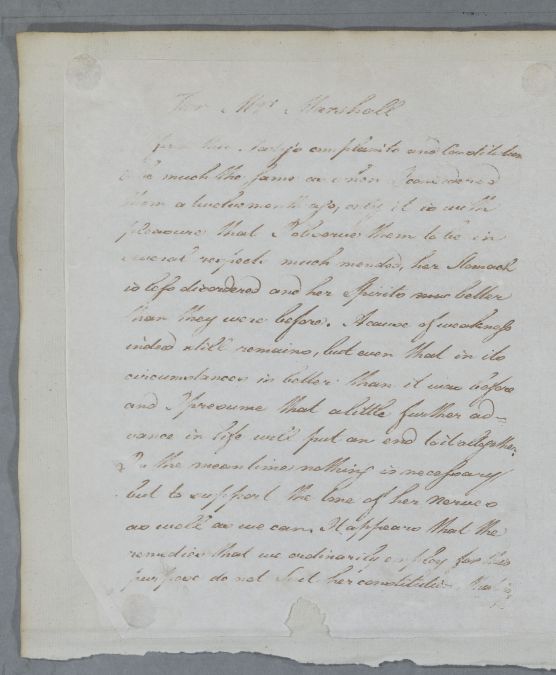 For Mrs Marshall
this Lady's complaints and Constitution
are much the same as when I considered
them a twelvemonth ago, only it is with
pleasure that I observe them to be in
several respects much mended, her Stomach
is less disordered and her Spirits are better
than they were before. A cause of weakness
indeed still remains, but even that in its
circumstances is better than it was before
and I presume that a little further ad-
vance in life will put an end to it altogether.
In the mean time nothing is necessary
but to support the tone of her nerves
as well as we can. It appears that the
remedies that we ordinarily employ for this
purpose do not suit her constitution